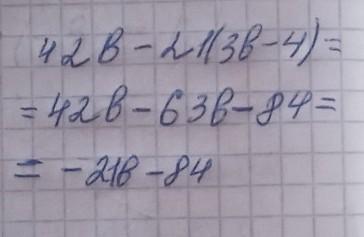 42в - 21(3в - 4) =
= 42в - 63в - 84 =
= - 21в - 84